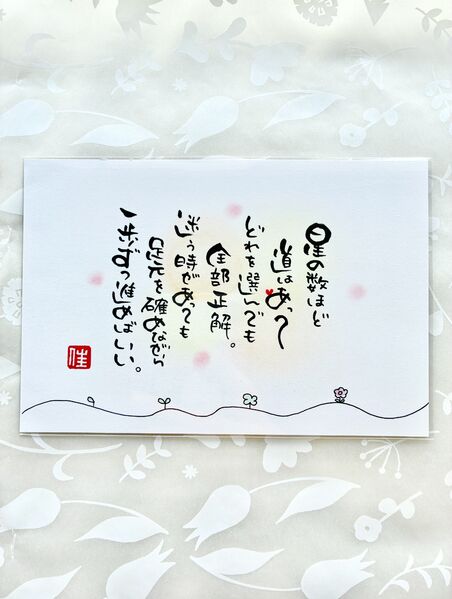 星の数ほど
道はあって
どれを選んでも
全部正解。
迷う時があっても
足元を確めながら
一歩ずつ進めばいい。
佳